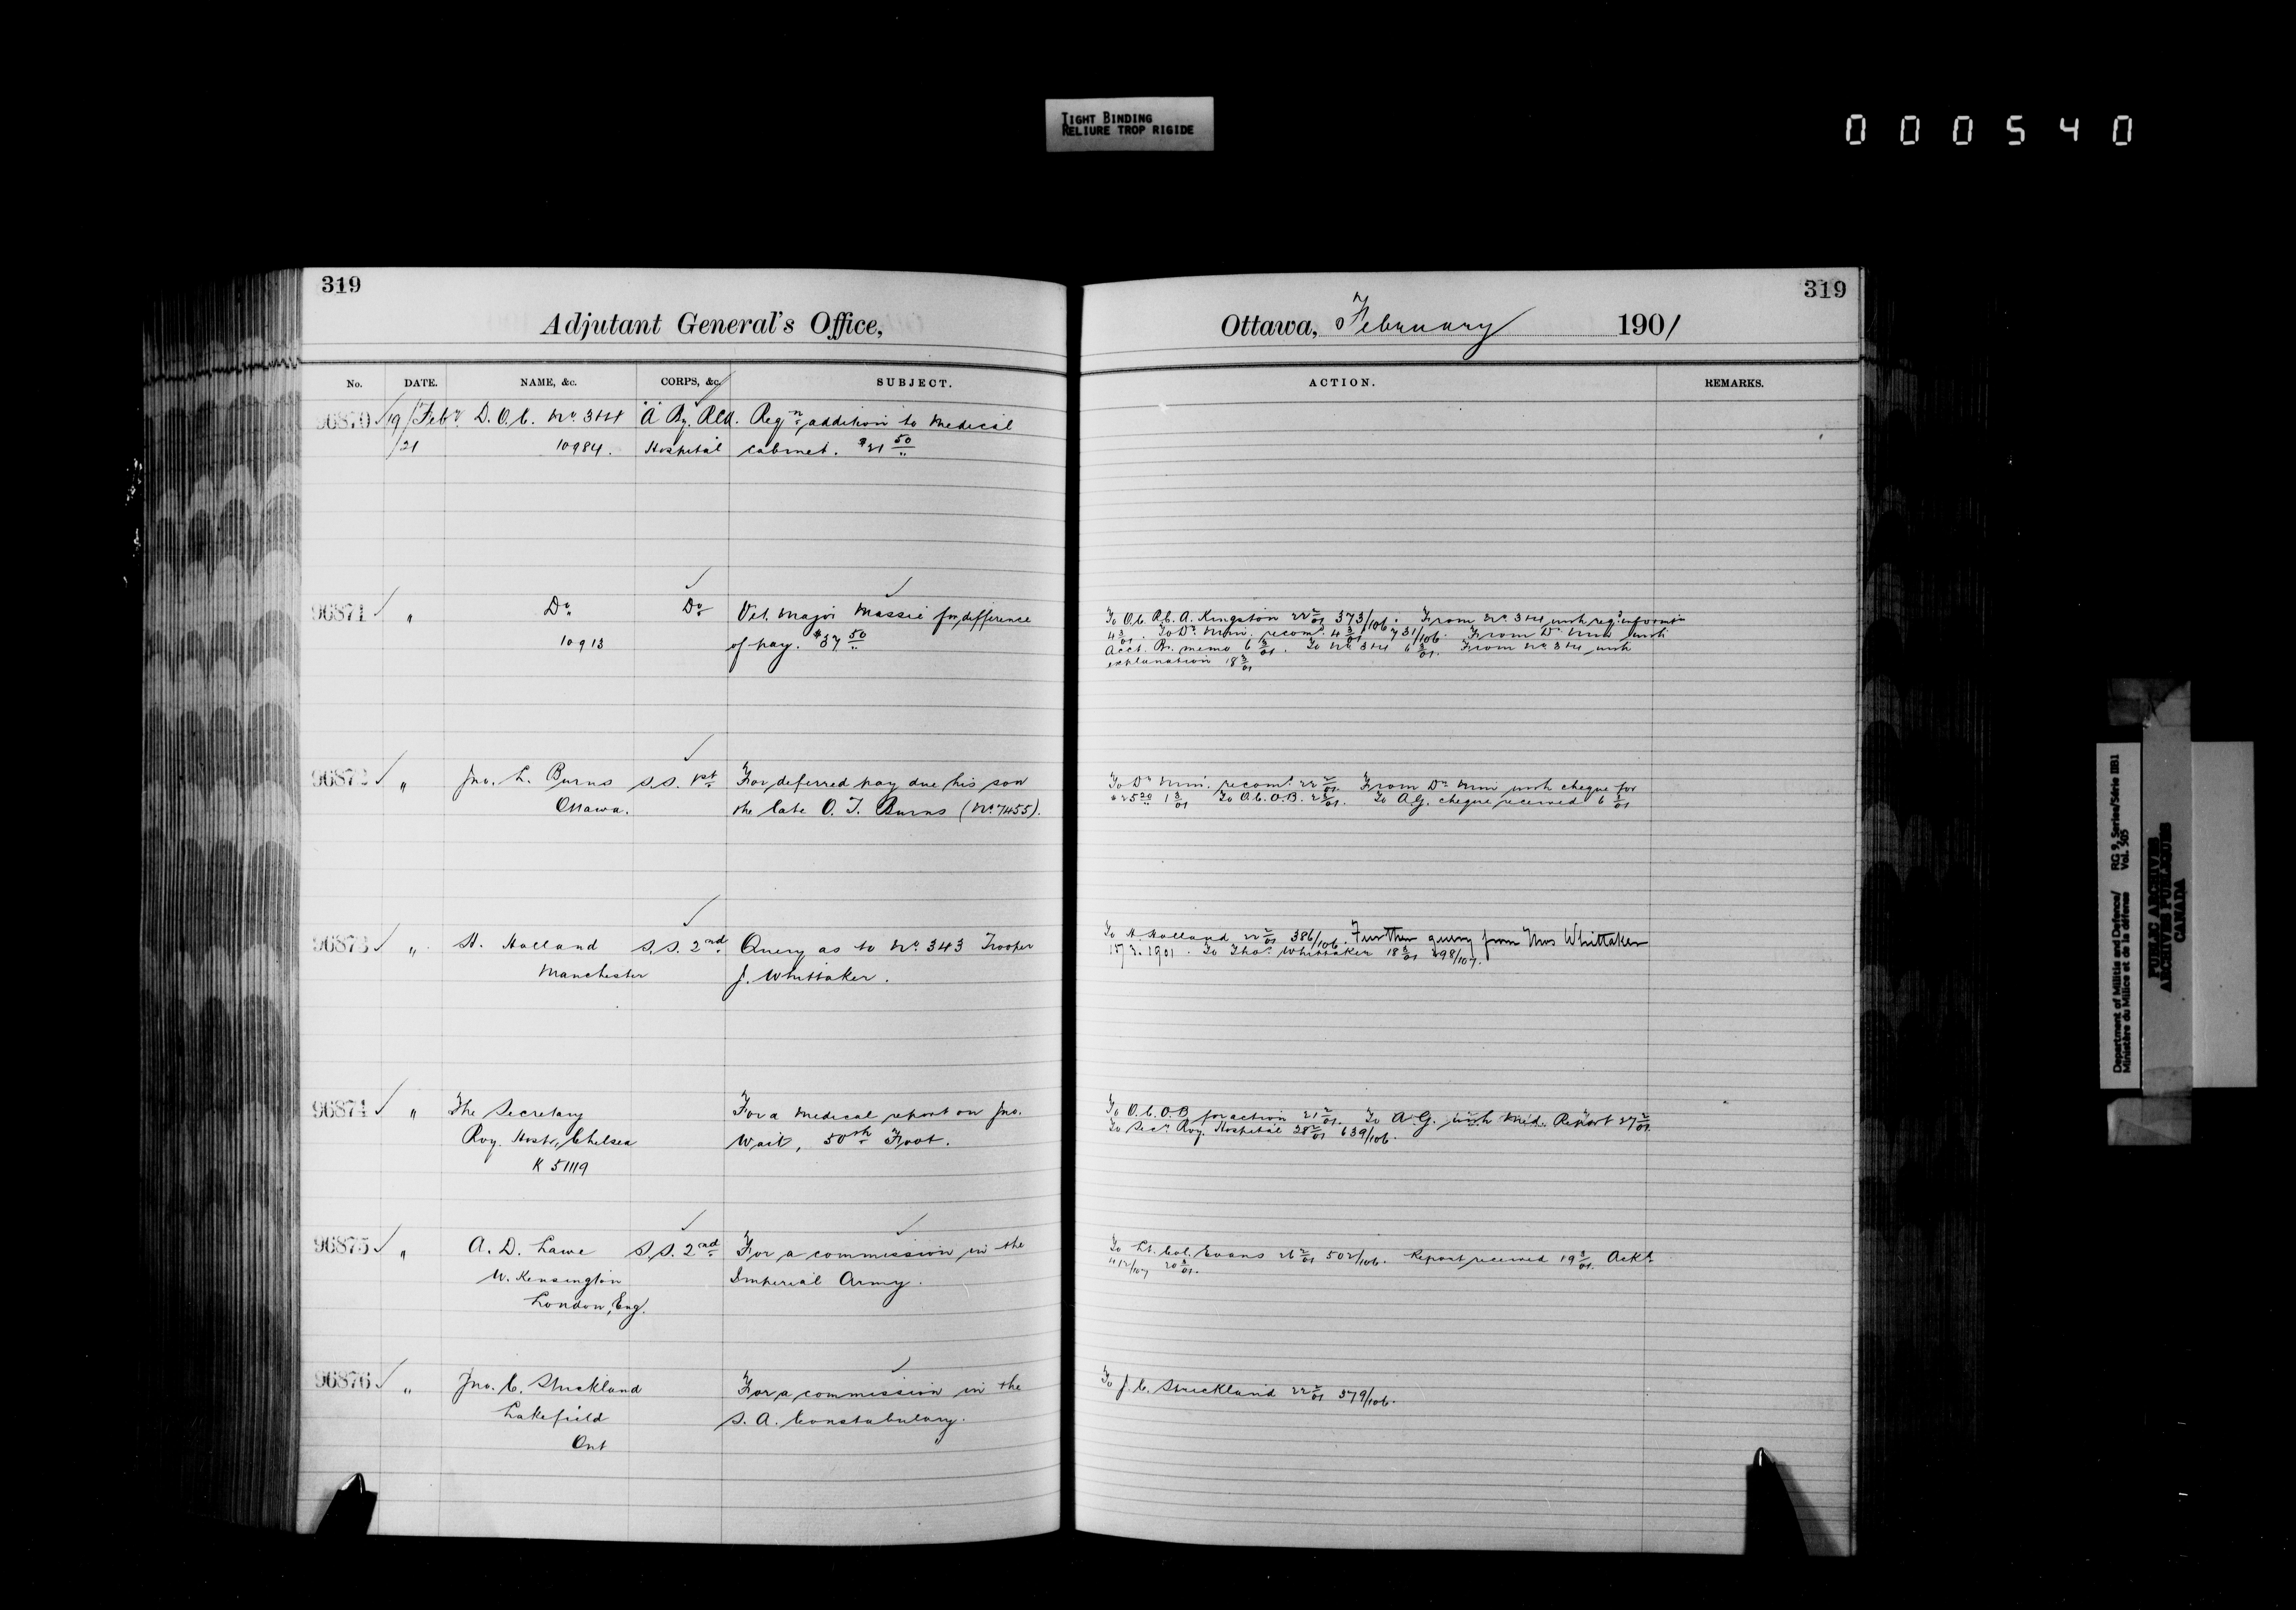 TIGHT BINDING
RELIURE TROP RIGIDE
000540
319
Adjutant General's Office,
No. DATE. NAME, &c. CORPS, &c. SUBJECT.
96870 19/Feby D.O.C. No. 3 & 4 "A" By. RCA. Reqn. addition to Medical
/21 10984. Hospital cabinet. $21 50
96871 " Do. Do. Vet. Major Massie for difference
10913 of pay. $37 50
96872 " Jno. L. Burns S.S. 1st For deferred pay due his son
Ottawa. the late O. T. Burns (No. 7455).
96873 " H. Holland S.S. 2nd Query as to No. 343 Trooper
Manchester J. Whittaker.
96874 " The Secretary For a medical report on Jno.
Roy. Hosp., Chelsea Wait, 50th Foot.
K 51119
96875 " A. D. Lawe S.S. 2nd For a commission in the
W. Kensington Imperial Army.
London, Eng.
96876 " Jno. C. Strickland For a commission in the
Lakefield S. A. Constabulary.
Ont
319
Ottawa, February 1901
ACTION. REMARKS.
To O.C. R.C.A. Kingston 22 2/01 373/106. From No. 3 & 4 with
4 3/01. To Dr. Min. recomd. 4 3/01 731/106. From Dr. Min with
Acct. Br. memo 6 3/01. To No. 3 & 4 6 3/01. From No. 3 & 4 with
explanation 18 3/01
To Dr. Min. recomd. 22 2/01. From Dr. Min with cheque for
1 3/01 To O.C.O.B. 2 3/01. To A.G. cheque received 6 3/01
To H Holland 22 2/01 386/106. Further query from Mrs Whittaker
15/3.1901. To Thos. Whittaker 18 3/01 298/107.
To O.C.O.B for action 21 2/01. To A.G. with Med. Report 27 2/01.
To Secy. Roy. Hospital 28 2/01 639/106.
To Lt. Col. Evans 26 2/01 502/106. Report received 19 3/01. Ackd.
412/107 20 3/01.
To J. C. Strickland 22 2/01 379/106.
Department of Militia and Defence/ RG 9, Series/Série IIB1
Ministère du Milice et de la défense Vol. 505
PUBLIC ARCHIVES
ARCHIVES PUBLIQUES
CANADA